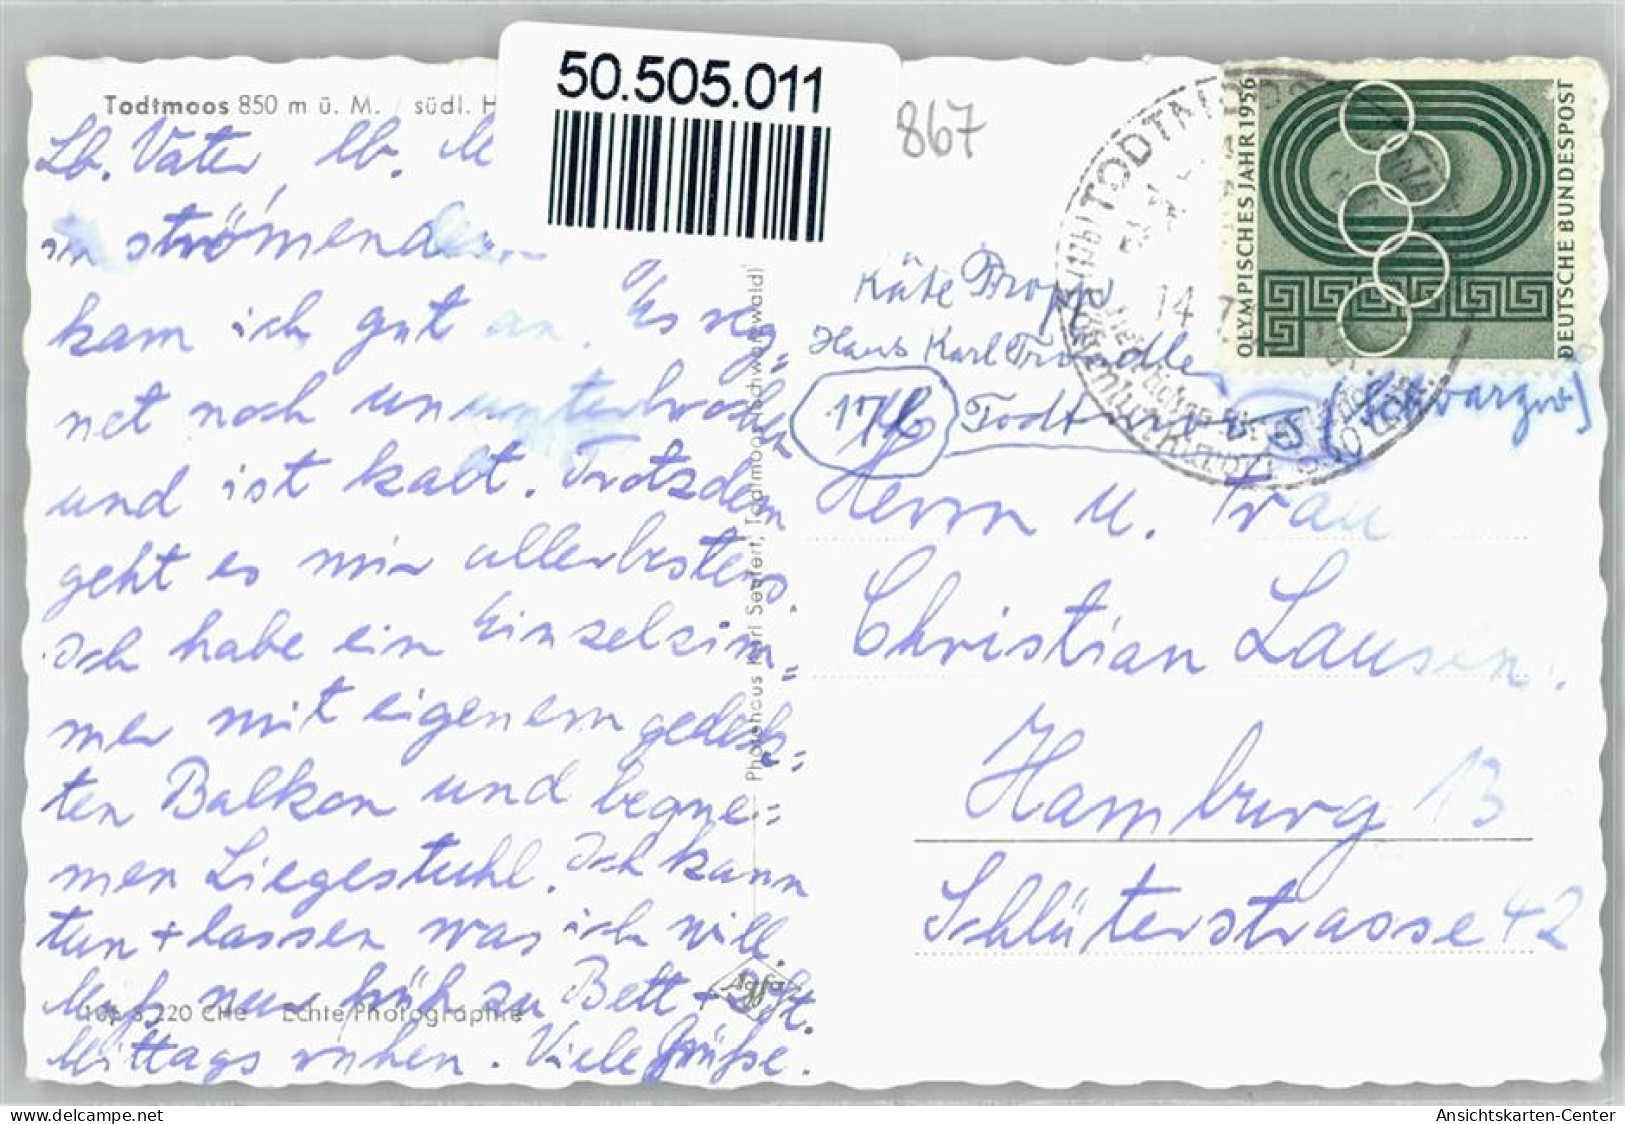 50.505.011
867
Todtmoos 850 m ü. M. südl. H
Lb. Vater, lb. M
in strömendem
kam ich gut an. Es reg=
net noch ununterbrochen
und ist kalt. Trotzdem
geht es mir allerbestens.
Ich habe ein Einzelzim=
mer mit eigenem gedeck=
ten Balkon und beque=
men Liegestuhl. Ich kann
tun + lassen was ich will.
Muß nur früh zu Bett +
Mittags ruhen. Viele Grüße.
220 CHe Echte Photographie
Agfa
Photohaus Karl Seufert, Todtmoos (Hochschwarzwald)
TODTMOOS
14. 7.
OLYMPISCHES JAHR 1956
DEUTSCHE BUNDESPOST
Käte
Haus Karl Tröndle
17b Todtmoos (Schwarzw.)
Herrn u. Frau
Christian Lausen.
Hamburg 13
Schlüterstrasse 42
https://www.delcampe.net
Ansichtskarten-Center